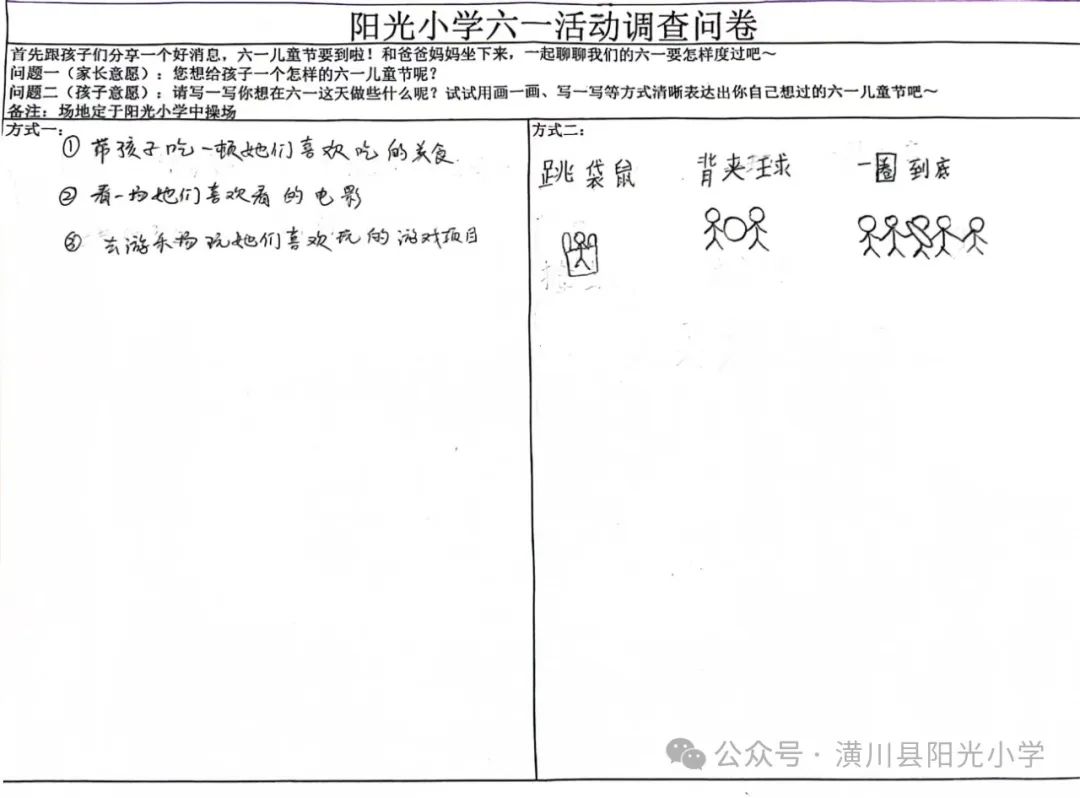 阳光小学六一活动调查问卷
首先跟孩子们分享一个好消息，六一儿童节要到啦！和爸爸妈妈坐下来，一起聊聊我们的六一要怎样度过吧～
问题一（家长意愿）：您想给孩子一个怎样的六一儿童节呢？
问题二（孩子意愿）：请写一写你想在六一这天做些什么呢？试试用画一画、写一写等方式清晰表达出你自己想过的六一儿童节吧～
备注：场地定于阳光小学中操场
方式一：
①带孩子吃一顿她们喜欢吃的美食.
②看一场她们喜欢看的电影
③去游乐场玩她们喜欢玩的游戏项目
方式二：
跳袋鼠 背夹球 一圈到底
公众号·潢川县阳光小学